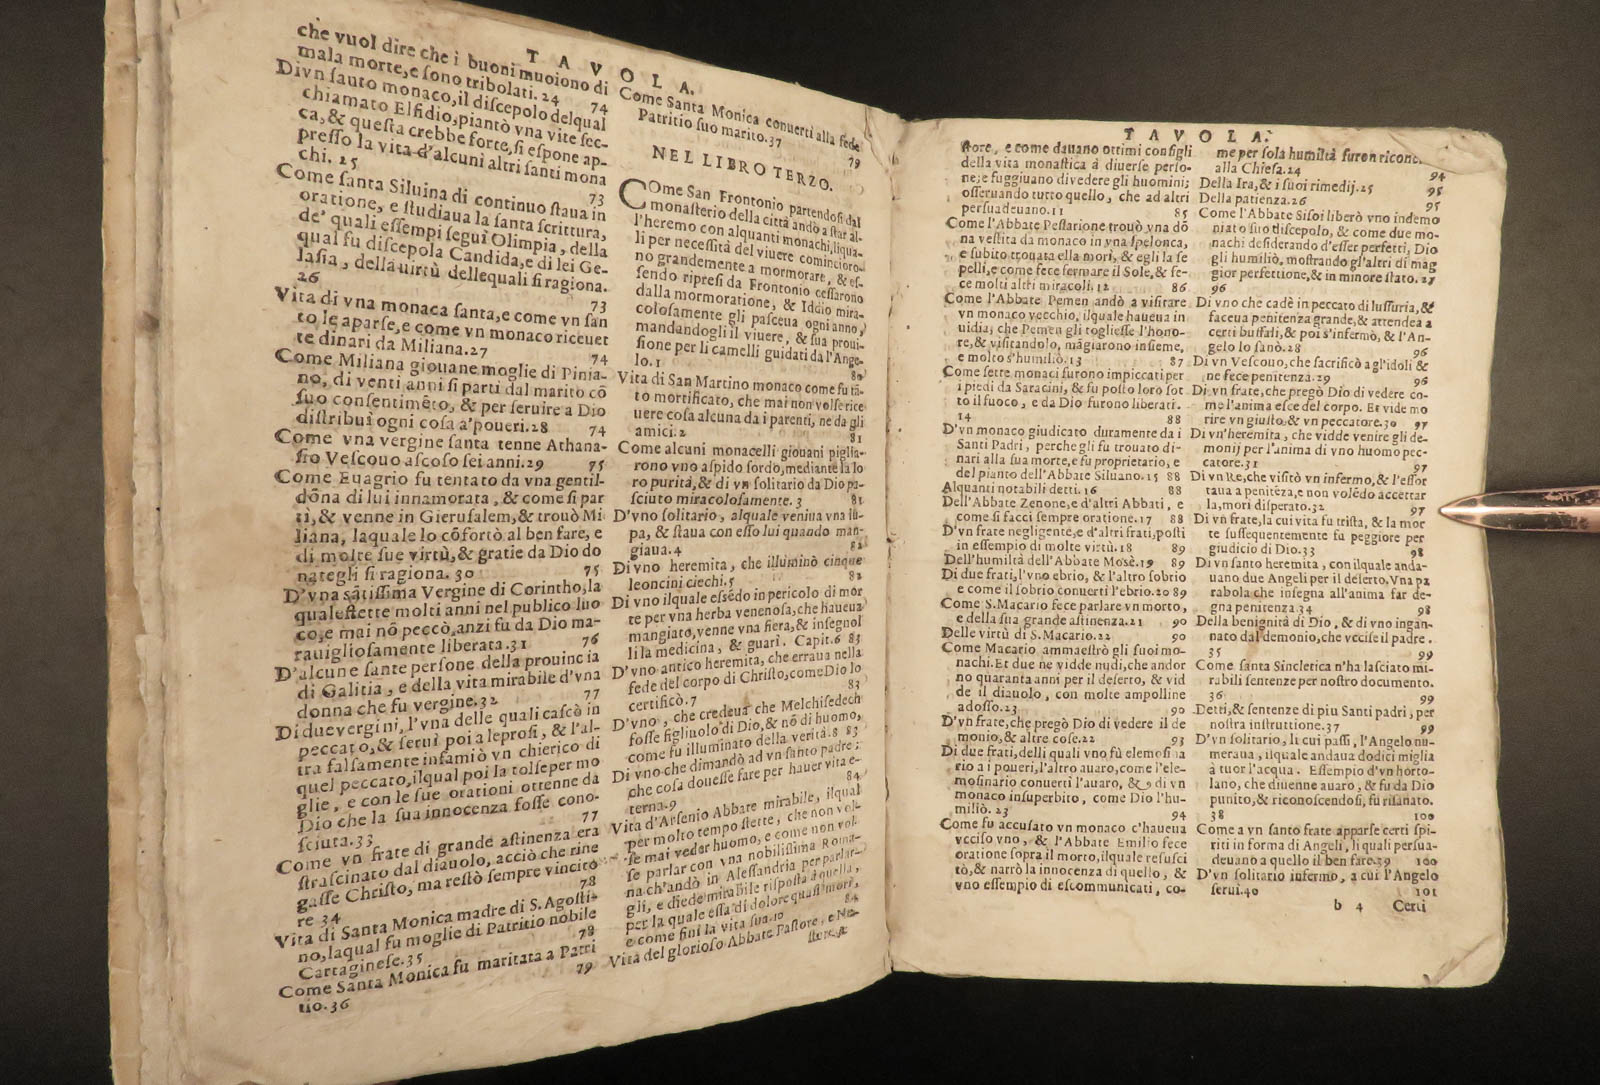 TAVOLA.
che vuol dire che i buoni muoiono di
mala morte, e sono tribolati. 24 74
Divn santo monaco, il discepolo delqual
chiamato Elfidio, piantò vna vite sec-
ca, & questa crebbe forte, si espone ap-
presso la vita d'alcuni altri santi mona
chi. 25 73
Come santa Siluina di continuo staua in
oratione, e studiaua la santa scrittura,
de' quali essempi seguì Olimpia, della
qual fu discepola Candida, e di lei Ge-
lasia, della virtù dellequali si ragiona.
26 73
Vita di vna monaca santa, e come vn san
to le aparse, e come vn monaco riceuet
te dinari da Miliana. 27 74
Come Miliana giouane moglie di Pinia-
no, di venti anni si partì dal marito cō
suo consentimēto, & per seruire a Dio
distribuì ogni cosa a' poueri. 28 74
Come vna vergine santa tenne Athana-
sio Vescouo ascoso sei anni. 29 75
Come Euagrio fu tentato da vna gentil-
dōna di lui innamorata, & come si par
tì, & venne in Gierusalem, & trouò Mi
liana, laquale lo cōfortò al ben fare, e
di molte sue virtù, & gratie da Dio do
nategli si ragiona. 30 75
D'vna sātissima Vergine di Corintho, la
quale stette molti anni nel publico luo
co, e mai nō peccò, anzi fu da Dio ma-
rauigliosamente liberata. 31 76
D'alcune sante persone della prouincia
di Galitia, e della vita mirabile d'vna
donna che fu vergine. 32 77
Di due vergini, l'vna delle quali cascò in
peccato, & seruì poi a leprosi, & l'al-
tra falsamente infamiò vn chierico di
quel peccato, ilqual poi la tolse per mo
glie, e con le sue orationi ottenne da
Dio che la sua innocenza fosse cono-
sciuta. 33 77
Come vn frate di grande astinenza era
strascinato dal diauolo, acciò che rine
gasse Christo, ma restò sempre vincito
re 34 78
Vita di Santa Monica madre di S. Agosti-
no, laqual fu moglie di Patritio nobile
Cartaginese. 35 78
Come Santa Monica fu maritata a Patri
tio. 36 79
Come Santa Monica conuertì alla fede
Patritio suo marito. 37 79
NEL LIBRO TERZO.
COme San Frontonio partendosi dal
monasterio della città andò a star al-
l'heremo con alquanti monachi, liqua-
li per necessità del viuere comincioro-
no grandemente a mormorare, & es-
sendo ripresi da Frontonio cessarono
dalla mormoratione, & Iddio mira-
colosamente gli pasceua ogni anno,
mandandogli il viuere, & sua proui-
sione per li camelli guidati da l'Ange-
lo. 1 80
Vita di San Martino monaco come fu tā-
to mortificato, che mai non volse rice
uere cosa alcuna da i parenti, ne da gli
amici. 2 81
Come alcuni monacelli giouani piglia-
rono vno aspido sordo, mediante la lo
ro purità, & di vn solitario da Dio pa-
sciuto miracolosamente. 3 81
D'vno solitario, alquale veniua vna lu-
pa, & staua con esso lui quando man-
giaua. 4 82
Di vno heremita, che illuminò cinque
leoncini ciechi. 5 82
Di vno ilquale essēdo in pericolo di mor
te per vna herba venenosa, che haueua
mangiato, venne vna fiera, & insegnol
li la medicina, & guarì. Capit. 6 83
D'vno antico heremita, che erraua nella
fede del corpo di Christo, come Dio lo
certificò. 7 83
D'vno, che credeua che Melchisedech
fosse figliuolo di Dio, & nō di huomo,
come fu illuminato della verità. 8 83
Di vno che dimandò ad vn santo padre;
che cosa douesse fare per hauer vita e-
terna. 9 84
Vita d'Arsenio Abbate mirabile, ilqual
per molto tempo stette, che non vol-
se mai veder huomo, e come non vol
se parlar con vna nobilissima Roma-
na ch'andò in Alessandria per parlar-
gli, e diede mirabile risposta a quella,
per la quale essa di dolore quasi morì,
e come finì la vita sua. 10 84
Vita del glorioso Abbate Pastore, e Ne-
store, &
TAVOLA.
store, e come dauano ottimi consigli
della vita monastica à diuerse perso-
ne; e fuggiuano di vedere gli huomini;
osseruando tutto quello, che ad altri
persuadeuano. 11 85
Come l'Abbate Pestarione trouò vna dō
na vestita da monaco in vna spelonca,
e subito trouata ella morì, & egli la se
pellì, e come fece fermare il Sole, & fe-
ce molti altri miracoli. 12 86
Come l'Abbate Pemen andò a visitare
vn monaco vecchio, ilquale haueua in
uidia; che Pemen gli togliesse l'hono-
re, & visitandolo, māgiarono insieme,
e molto s'humiliò. 13 87
Come sette monaci furono impiccati per
i piedi da Saracini, & fu posto loro sot
to il fuoco, e da Dio furono liberati.
14 88
D'vn monaco giudicato duramente da i
Santi Padri, perche gli fu trouato di-
nari alla sua morte, e fu proprietario, e
del pianto dell'Abbate Siluano. 15 88
Alquanti notabili detti. 16 88
Dell'Abbate Zenone, e d'altri Abbati, e
come si facci sempre oratione. 17 88
D'vn frate negligente, e d'altri frati, posti
in essempio di molte virtù. 18 89
Dell'humiltà dell'Abbate Mosè. 19 89
Di due frati, l'vno ebrio, & l'altro sobrio
e come il sobrio conuertì l'ebrio. 20 89
Come S. Macario fece parlare vn morto,
e della sua grande astinenza. 21 90
Delle virtù di S. Macario. 22 90
Come Macario ammaestrò gli suoi mo-
nachi. Et due ne vidde nudi, che andor
no quaranta anni per il deserto, & vid
de il diauolo, con molte ampolline
adosso. 23 90
D'vn frate, che pregò Dio di vedere il de
monio, & altre cose. 22 93
Di due frati, delli quali vno fù elemosina
rio a i poueri, l'altro auaro, come l'ele-
mosinario conuertì l'auaro, & di vn
monaco insuperbito, come Dio l'hu-
miliò. 23 94
Come fu accusato vn monaco c'haueua
vcciso vno, & l'Abbate Emilio fece
oratione sopra il morto, ilquale resusci
tò, & narrò la innocenza di quello, &
vno essempio di escommunicati, co-
me per sola humiltà furon riconci
alla Chiesa. 24 94
Della Ira, & i suoi rimedij. 25 95
Della patienza. 26 95
Come l'Abbate Sisoi liberò vno indemo
niato suo discepolo, & come due mo-
nachi desiderando d'esser perfetti, Dio
gli humiliò, mostrando gl'altri di mag
gior perfettione, & in minore stato. 27
96
Di vno che cadè in peccato di lussuria, &
faceua penitenza grande, & attendea a
certi buffali, & poi s'infermò, & l'An-
gelo lo sanò. 28 96
Di vn Vescouo, che sacrificò a gl'idoli &
ne fece penitenza. 29 96
Di vn frate, che pregò Dio di vedere co-
me l'anima esce del corpo. Et vide mo
rire vn giusto, & vn peccatore. 30 97
Di vn'heremita, che vidde venire gli de-
monij per l'anima di vno huomo pec-
catore. 31 97
Di vn Re, che visitò vn infermo, & l'essor
taua a penitēza, e non volēdo accettar
la, morì disperato. 32 97
Di vn frate, la cui vita fu trista, & la mor
te sussequentemente fu peggiore per
giudicio di Dio. 33 98
Di vn santo heremita, con ilquale anda-
uano due Angeli per il deserto, Vna pa
rabola che insegna all'anima far de-
gna penitenza. 34 98
Della benignità di Dio, & di vno ingan-
nato dal demonio, che vccise il padre.
35 99
Come santa Sincletica n'ha lasciato mi-
rabili sentenze per nostro documento.
36 99
Detti, & sentenze di piu Santi padri, per
nostra instruttione. 37 99
D'vn solitario, li cui passi, l'Angelo nu-
meraua, ilquale andaua dodici miglia
à tuor l'acqua. Essempio d'vn horto-
lano, che diuenne auaro, & fu da Dio
punito, & riconoscendosi, fù risanato.
38 100
Come a vn santo frate apparse certi spi-
riti in forma di Angeli, li quali persua-
deuano a quello il ben fare. 39 100
D'vn solitario infermo, a cui l'Angelo
seruì. 40 101
b 4 Certi